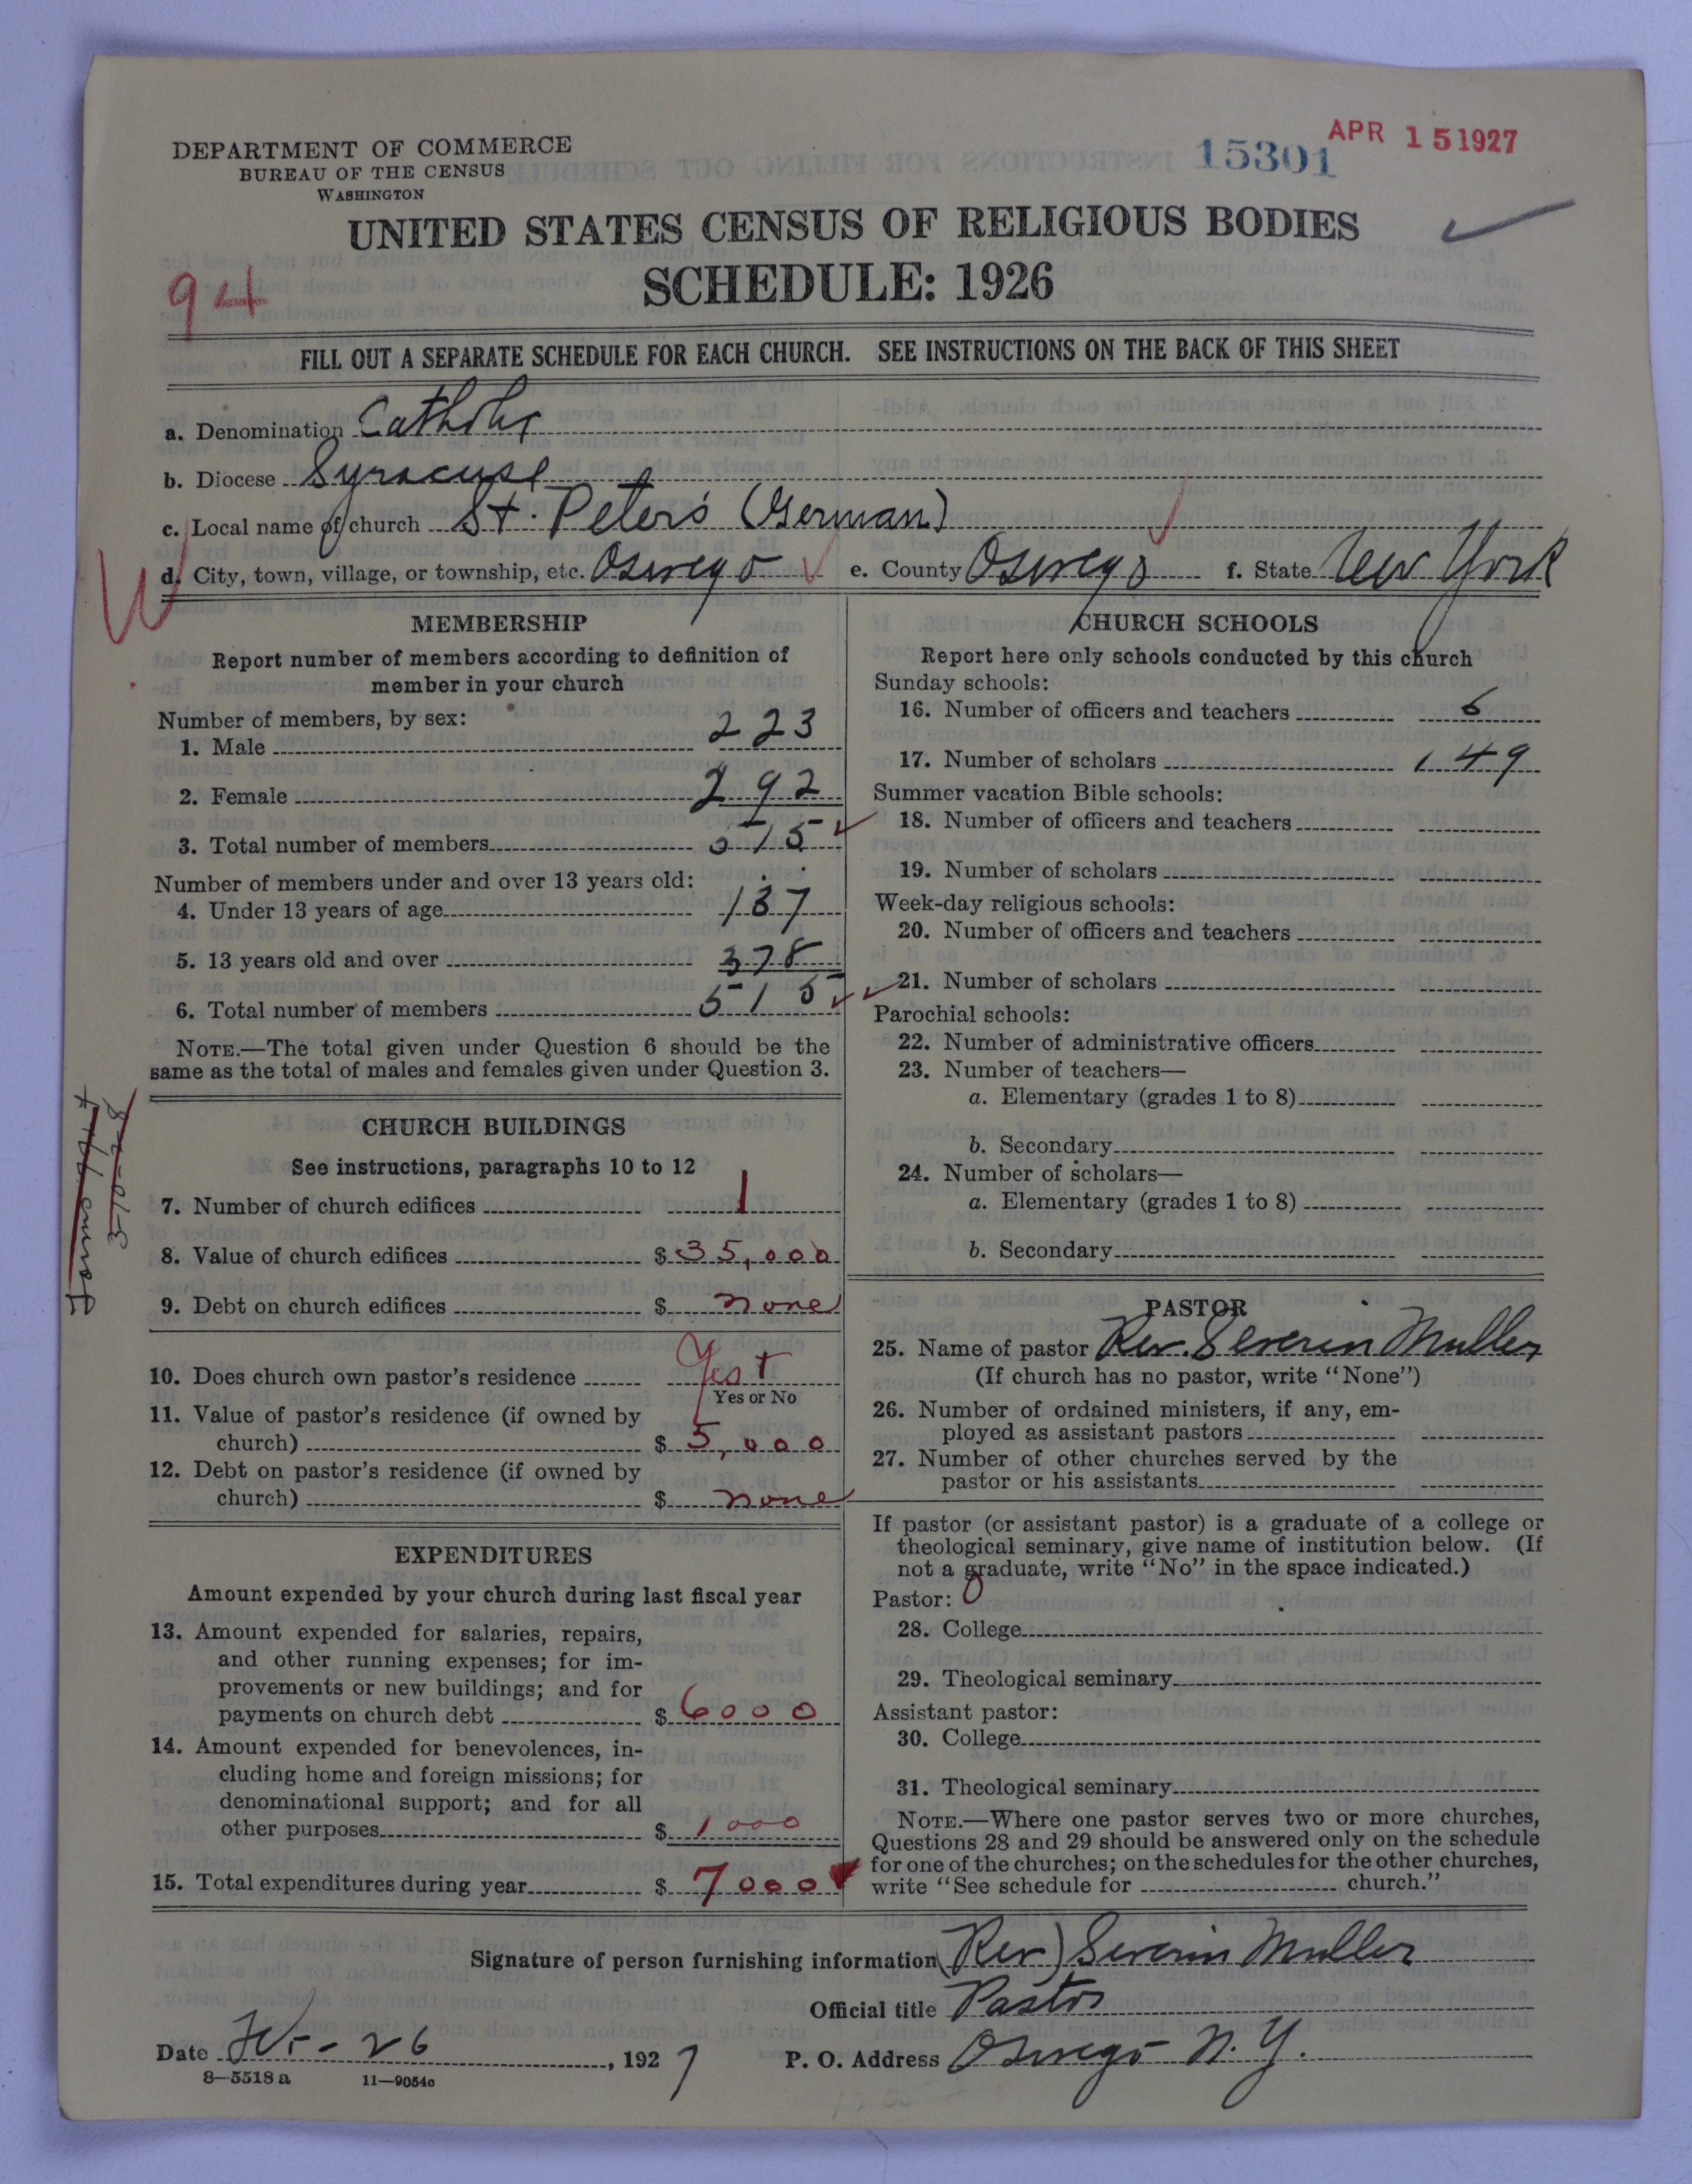 DEPARTMENT OF COMMERCE
BUREAU OF THE CENSUS
WASHINGTON
15301
APR 15 1927
UNITED STATES CENSUS OF RELIGIOUS BODIES
SCHEDULE: 1926
94
FILL OUT A SEPARATE SCHEDULE FOR EACH CHURCH. SEE INSTRUCTIONS ON THE BACK OF THIS SHEET
a. Denomination Catholic
b. Diocese Syracuse
c. Local name of church St. Peter's (German)
d. City, town, village, or township, etc. Oswego e. County Oswego f. State New York
W
MEMBERSHIP
Report number of members according to definition of
member in your church
Number of members, by sex:
1. Male 223
2. Female 292
3. Total number of members 515
Number of members under and over 13 years old:
4. Under 13 years of age 137
5. 13 years old and over 378
6. Total number of members 515
NOTE.—The total given under Question 6 should be the
same as the total of males and females given under Question 3.
CHURCH BUILDINGS
See instructions, paragraphs 10 to 12
7. Number of church edifices 1
8. Value of church edifices $ 35,000
9. Debt on church edifices $ none
10. Does church own pastor's residence Yes
Yes or No
11. Value of pastor's residence (if owned by
church) $ 5,000
12. Debt on pastor's residence (if owned by
church) $ none
EXPENDITURES
Amount expended by your church during last fiscal year
13. Amount expended for salaries, repairs,
and other running expenses; for im-
provements or new buildings; and for
payments on church debt $ 6000
14. Amount expended for benevolences, in-
cluding home and foreign missions; for
denominational support; and for all
other purposes $ 1000
15. Total expenditures during year $ 7000
CHURCH SCHOOLS
Report here only schools conducted by this church
Sunday schools:
16. Number of officers and teachers 6
17. Number of scholars 149
Summer vacation Bible schools:
18. Number of officers and teachers
19. Number of scholars
Week-day religious schools:
20. Number of officers and teachers
21. Number of scholars
Parochial schools:
22. Number of administrative officers
23. Number of teachers—
a. Elementary (grades 1 to 8)
b. Secondary
24. Number of scholars—
a. Elementary (grades 1 to 8)
b. Secondary
PASTOR
25. Name of pastor Rev. Severin Muller
(If church has no pastor, write "None")
26. Number of ordained ministers, if any, em-
ployed as assistant pastors
27. Number of other churches served by the
pastor or his assistants
If pastor (or assistant pastor) is a graduate of a college or
theological seminary, give name of institution below. (If
not a graduate, write "No" in the space indicated.)
Pastor:
28. College
29. Theological seminary
Assistant pastor:
30. College
31. Theological seminary
NOTE.—Where one pastor serves two or more churches,
Questions 28 and 29 should be answered only on the schedule
for one of the churches; on the schedules for the other churches,
write "See schedule for church."
Signature of person furnishing information (Rev) Severin Muller
Official title Pastor
Date Feb - 26, 1927 P. O. Address Oswego N. Y.
8—5518 a 11—9054c